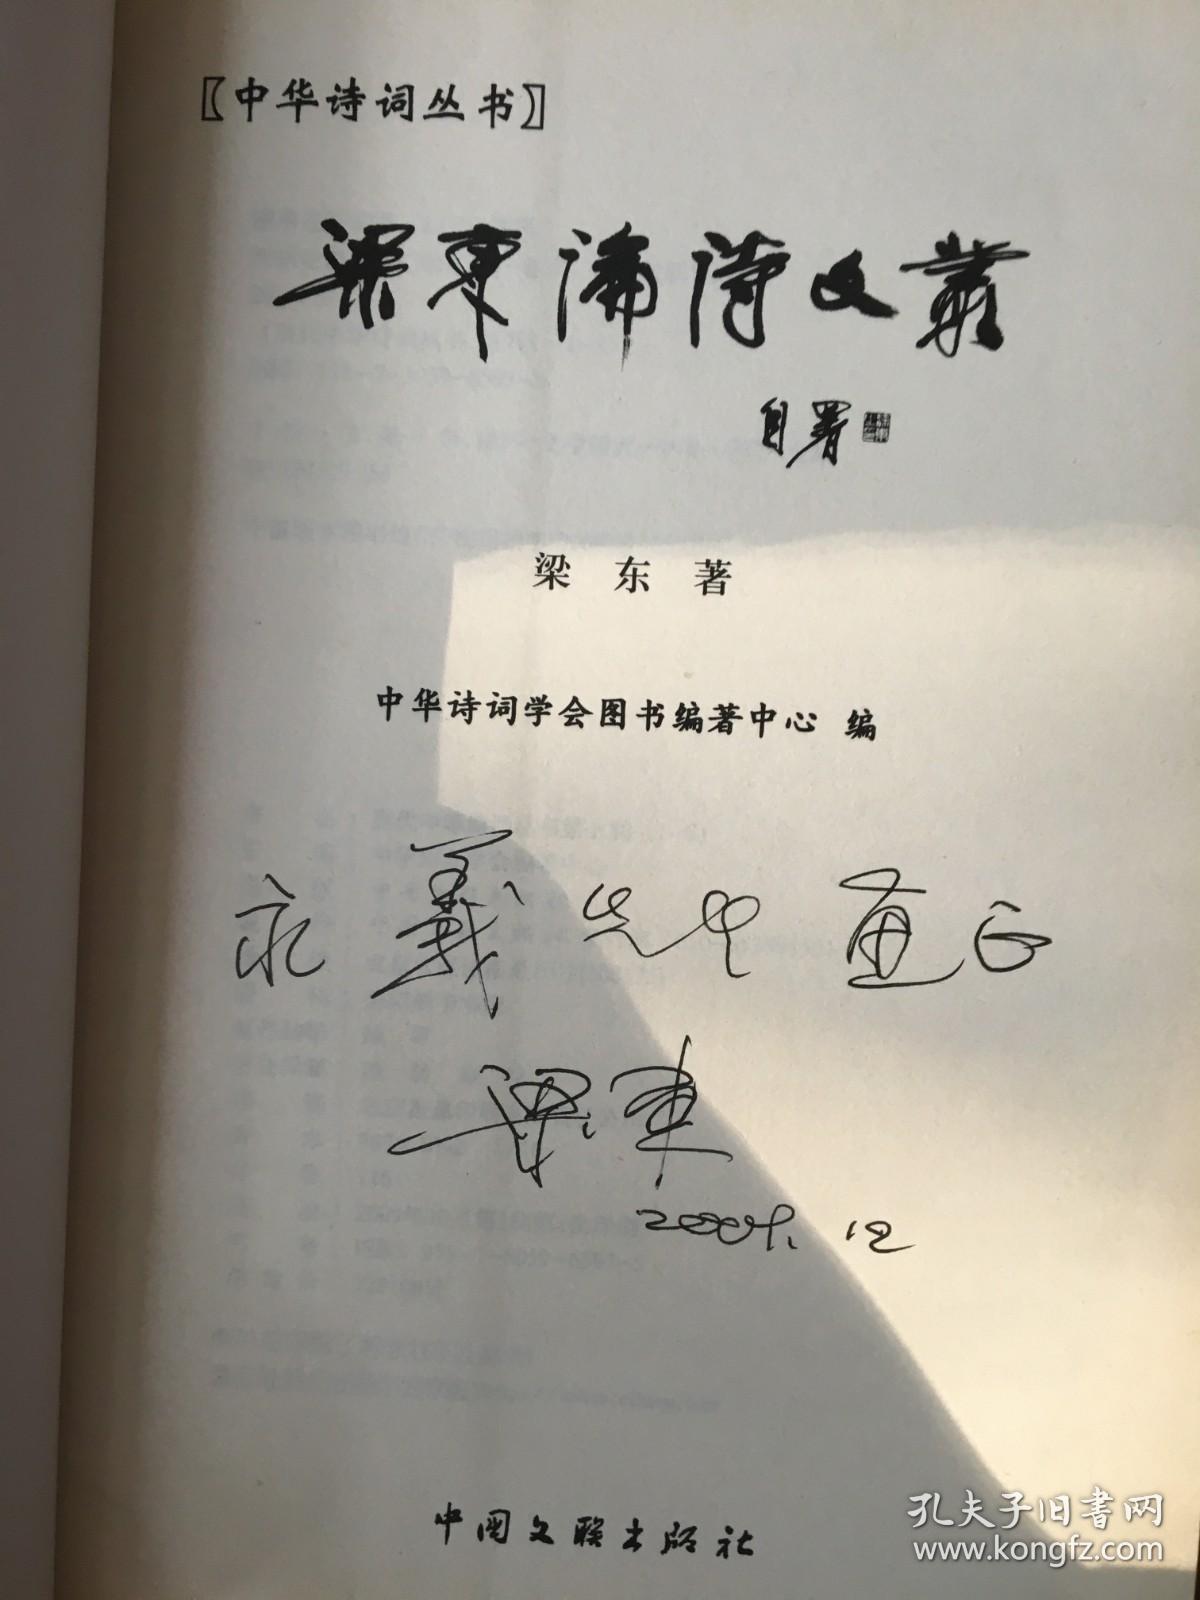 〖中华诗词丛书〗
梁東論詩文叢
自署
梁东著
中华诗词学会图书编著中心 编
永義先生画正
梁東
2009.12
中国文联出版社
孔夫子旧书网
www.kongfz.com